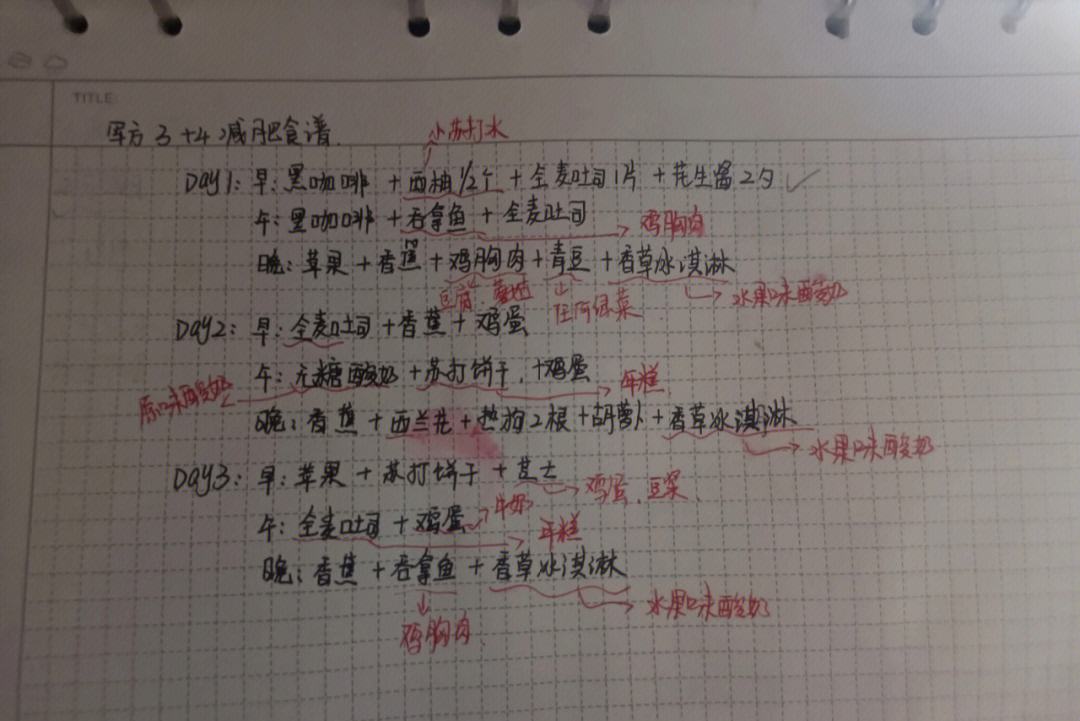 TITLE:
军方3+4减肥食谱.
小苏打水
Day1: 早: 黑咖啡 + 西柚1/2个 + 全麦吐司1片 + 花生酱2勺 ✓
午: 黑咖啡 + 吞拿鱼 + 全麦吐司
鸡胸肉
晚: 苹果 + 香蕉 + 鸡胸肉 + 青豆 + 香草冰淇淋
豆腐.
任何绿菜
水果味酸奶
Day2: 早: 全麦吐司 + 香蕉 + 鸡蛋
午: 无糖酸奶 + 苏打饼干, + 鸡蛋
原味酸奶
年糕.
晚: 香蕉 + 西兰花 + 热狗2根 + 胡萝卜 + 香草冰淇淋
水果味酸奶
Day3: 早: 苹果 + 苏打饼干 + 芝士
鸡蛋. 豆浆.
午: 全麦吐司 + 鸡蛋
牛奶
年糕
晚: 香蕉 + 吞拿鱼 + 香草冰淇淋
水果味酸奶
鸡胸肉.